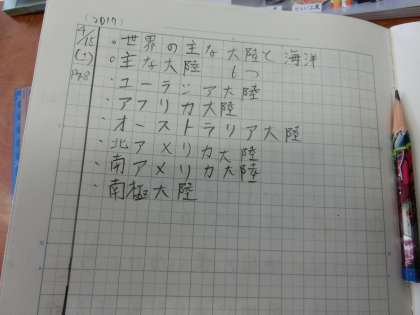 (2017)
4/15
(土)
P78
世界の主な大陸と海洋
主な大陸 6つ
・ユーラシア大陸
・アフリカ大陸
・オーストラリア大陸
・北アメリカ大陸
・南アメリカ大陸
・南極大陸